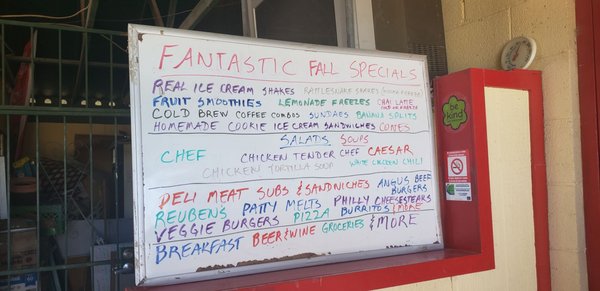 FANTASTIC FALL SPECIALS
REAL ICE CREAM SHAKES RATTLESNAKE SHAKES
FRUIT SMOOTHIES LEMONADE FREEZES CHAI LATTE
COLD BREW COFFEE COMBOS SUNDAES BANANA SPLITS
HOMEMADE COOKIE ICE CREAM SANDWICHES CONES
SALADS SOUPS
CHEF CHICKEN TENDER CHEF CAESAR
CHICKEN TORTILLA SOUP WHITE CHICKEN CHILI
DELI MEAT SUBS & SANDWICHES ANGUS BEEF BURGERS
REUBENS PATTY MELTS PHILLY CHEESESTEAKS
VEGGIE BURGERS PIZZA BURRITOS & MORE
BREAKFAST BEER & WINE GROCERIES & MORE
be kind